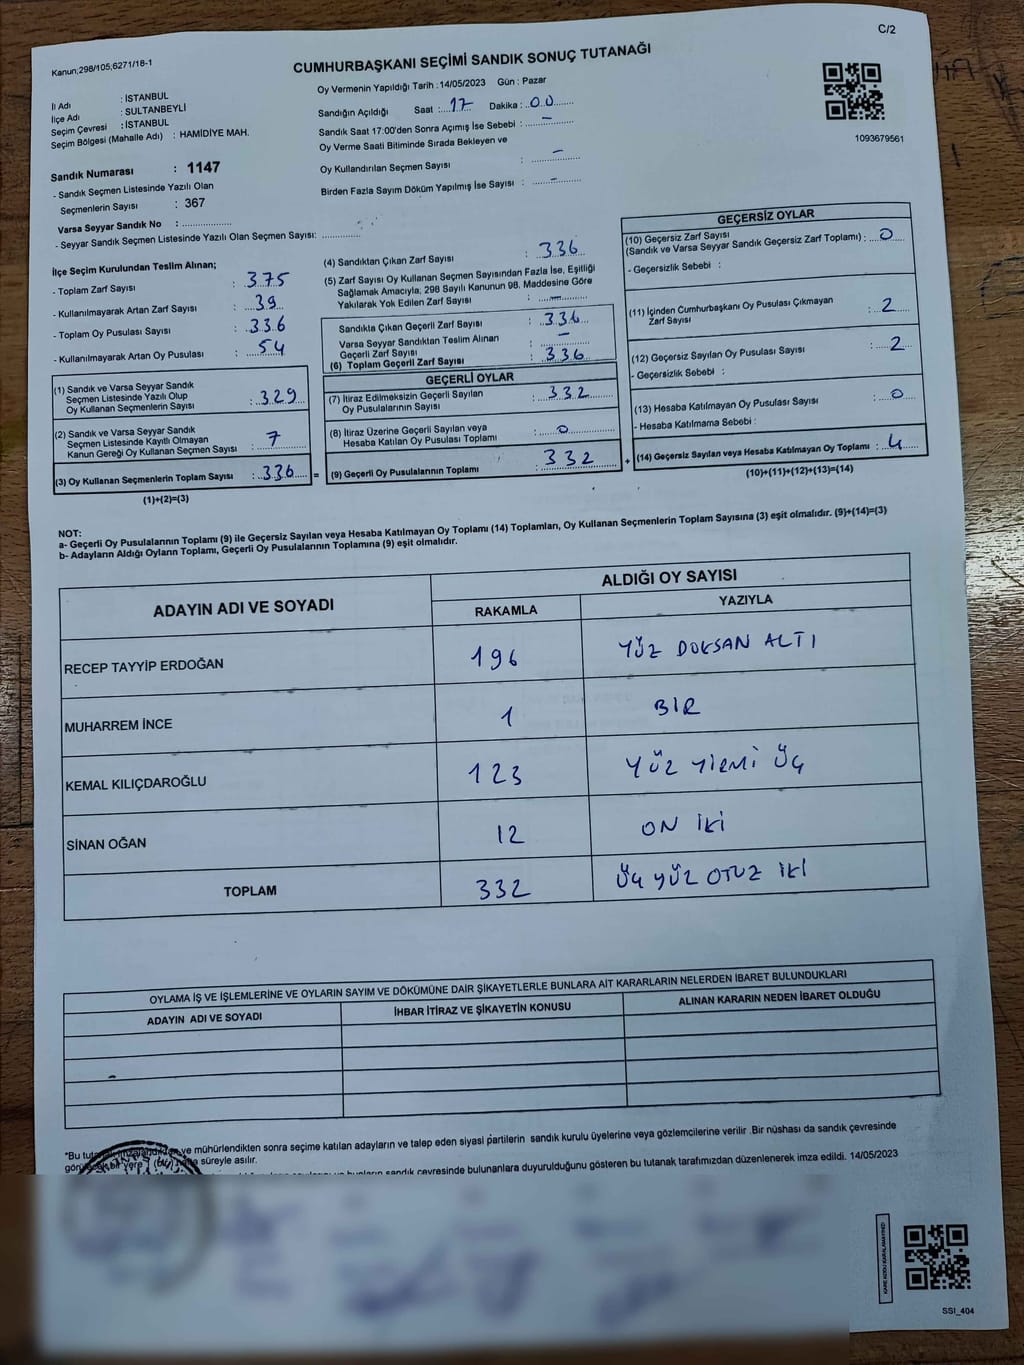 C/2
Kanun;298/105;6271/18-1
CUMHURBAŞKANI SEÇİMİ SANDIK SONUÇ TUTANAĞI
İl Adı : İSTANBUL
İlçe Adı : SULTANBEYLİ
Seçim Çevresi : İSTANBUL
Seçim Bölgesi (Mahalle Adı) : HAMİDİYE MAH.
Sandık Numarası : 1147
- Sandık Seçmen Listesinde Yazılı Olan
Seçmenlerin Sayısı : 367
Varsa Seyyar Sandık No :
- Seyyar Sandık Seçmen Listesinde Yazılı Olan Seçmen Sayısı:
Oy Vermenin Yapıldığı Tarih :14/05/2023 Gün : Pazar
Sandığın Açıldığı Saat : 17 Dakika : 00
Sandık Saat 17:00'den Sonra Açımış İse Sebebi : -
Oy Verme Saati Bitiminde Sırada Bekleyen ve
Oy Kullandırılan Seçmen Sayısı : -
Birden Fazla Sayım Döküm Yapılmış İse Sayısı : -
1093679561
İlçe Seçim Kurulundan Teslim Alınan;
- Toplam Zarf Sayısı : 375
- Kullanılmayarak Artan Zarf Sayısı : 39
- Toplam Oy Pusulası Sayısı : 336
- Kullanılmayarak Artan Oy Pusulası : 54
(1) Sandık ve Varsa Seyyar Sandık
Seçmen Listesinde Yazılı Olup
Oy Kullanan Seçmenlerin Sayısı : 329
(2) Sandık ve Varsa Seyyar Sandık
Seçmen Listesinde Kayıtlı Olmayan
Kanun Gereği Oy Kullanan Seçmen Sayısı : 7
(3) Oy Kullanan Seçmenlerin Toplam Sayısı : 336 =
(1)+(2)=(3)
(4) Sandıktan Çıkan Zarf Sayısı : 336
(5) Zarf Sayısı Oy Kullanan Seçmen Sayısından Fazla İse, Eşitliği
Sağlamak Amacıyla, 298 Sayılı Kanunun 98. Maddesine Göre
Yakılarak Yok Edilen Zarf Sayısı : -
Sandıkta Çıkan Geçerli Zarf Sayısı : 336
Varsa Seyyar Sandıktan Teslim Alınan
Geçerli Zarf Sayısı : -
(6) Toplam Geçerli Zarf Sayısı : 336
GEÇERLİ OYLAR
(7) İtiraz Edilmeksizin Geçerli Sayılan
Oy Pusulalarının Sayısı : 332
(8) İtiraz Üzerine Geçerli Sayılan veya
Hesaba Katılan Oy Pusulası Toplamı : 0
(9) Geçerli Oy Pusulalarının Toplamı : 332 +
GEÇERSİZ OYLAR
(10) Geçersiz Zarf Sayısı
(Sandık ve Varsa Seyyar Sandık Geçersiz Zarf Toplamı) : 0
- Geçersizlik Sebebi :
(11) İçinden Cumhurbaşkanı Oy Pusulası Çıkmayan
Zarf Sayısı : 2
(12) Geçersiz Sayılan Oy Pusulası Sayısı : 2
- Geçersizlik Sebebi :
(13) Hesaba Katılmayan Oy Pusulası Sayısı : 0
- Hesaba Katılmama Sebebi :
(14) Geçersiz Sayılan veya Hesaba Katılmayan Oy Toplamı : 4
(10)+(11)+(12)+(13)=(14)
NOT:
a- Geçerli Oy Pusulalarının Toplamı (9) ile Geçersiz Sayılan veya Hesaba Katılmayan Oy Toplamı (14) Toplamları, Oy Kullanan Seçmenlerin Toplam Sayısına (3) eşit olmalıdır. (9)+(14)=(3)
b- Adayların Aldığı Oyların Toplamı, Geçerli Oy Pusulalarının Toplamına (9) eşit olmalıdır.
ADAYIN ADI VE SOYADI ALDIĞI OY SAYISI
RAKAMLA YAZIYLA
RECEP TAYYİP ERDOĞAN 196 YÜZ DOKSAN ALTI
MUHARREM İNCE 1 BİR
KEMAL KILIÇDAROĞLU 123 YÜZ YİRMİ ÜÇ
SİNAN OĞAN 12 ON İKİ
TOPLAM 332 ÜÇ YÜZ OTUZ İKİ
OYLAMA İŞ VE İŞLEMLERİNE VE OYLARIN SAYIM VE DÖKÜMÜNE DAİR ŞİKAYETLERLE BUNLARA AİT KARARLARIN NELERDEN İBARET BULUNDUKLARI
ADAYIN ADI VE SOYADI İHBAR İTİRAZ VE ŞİKAYETİN KONUSU ALINAN KARARIN NEDEN İBARET OLDUĞU
*Bu ve mühürlendikten sonra seçime katılan adayların ve talep eden siyasi partilerin sandık kurulu üyelerine veya gözlemcilerine verilir .Bir nüshası da sandık çevresinde
süreyle asılır.
sandık çevresinde bulunanlara duyurulduğunu gösteren bu tutanak tarafımızdan düzenlenerek imza edildi. 14/05/2023
SSI_404